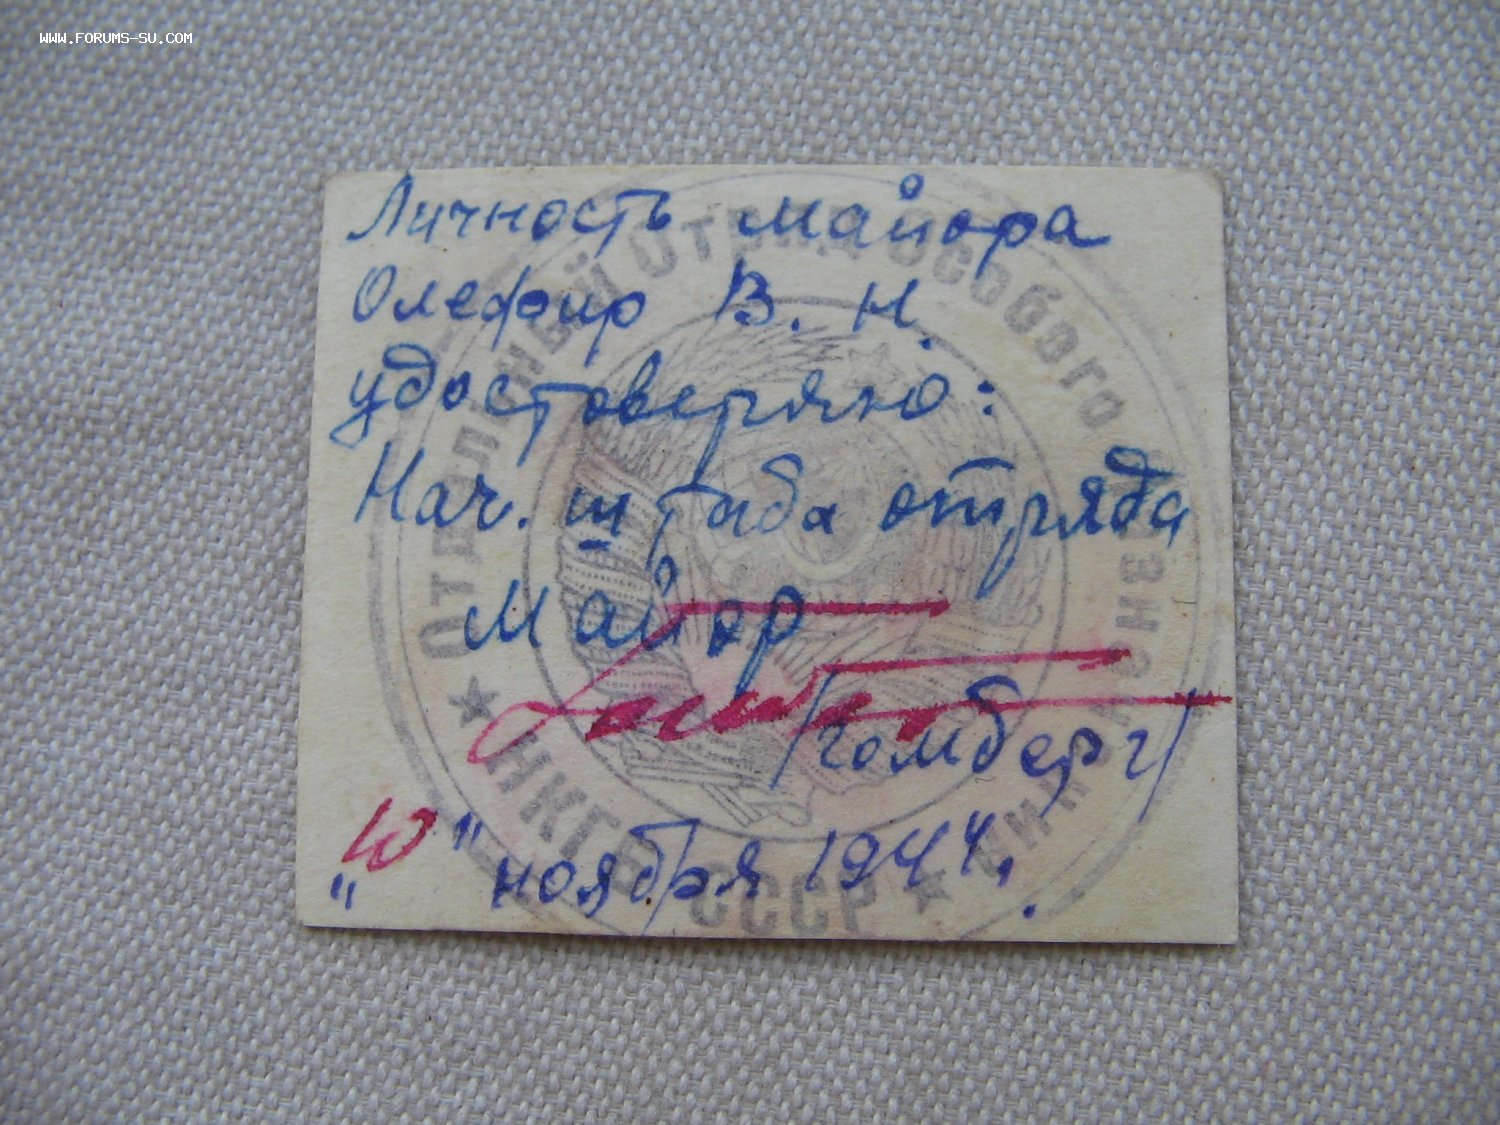 WWW.FORUMS-SU.COM
Личность майора
Олефир В. Н.
удостоверяю:
Нач. штаба отряда
майор
/Гомберг/
"10" ноября 1944 г.
Отдельный Отряд Особого
НКГБ СССР